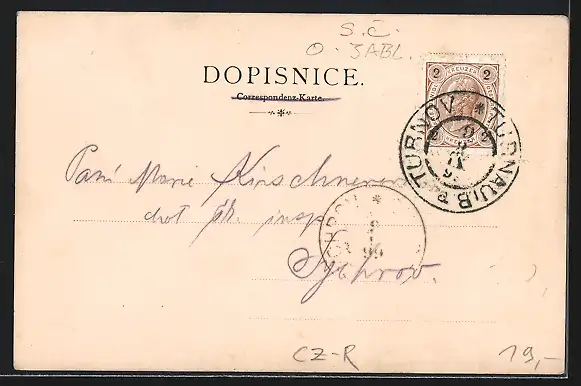 S.Č.
O-3ABL.
DOPISNICE.
Correspondenz-Karte.
2 KREUZER 2
TURNOV * TURNAU B.
Paní Marie Kirschnerova
chot insp
Sychrov.
CZ-R
19,-